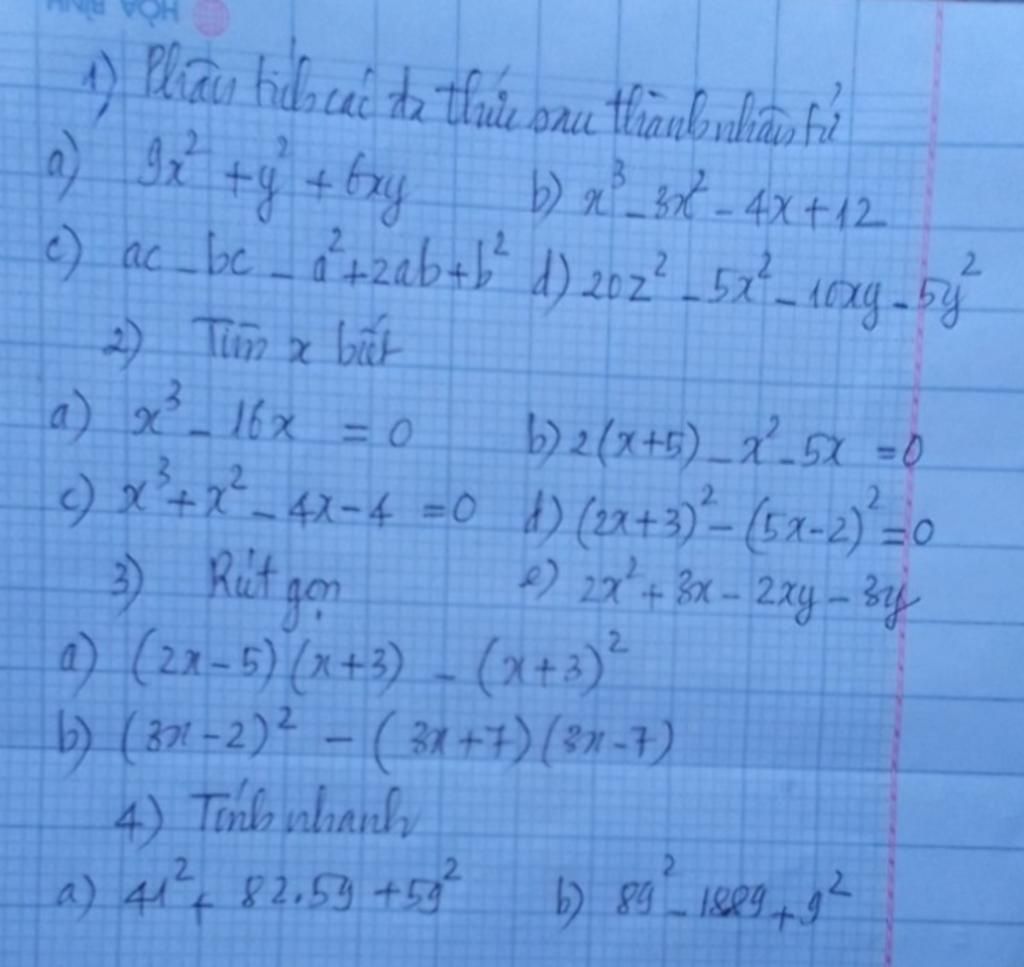 HÒA BÌNH
1) Phân tích các đa thức sau thành nhân tử
a) 9x² + y² + 6xy b) x³ - 3x² - 4x + 12
c) ac - bc - a² + 2ab + b² d) 20z² - 5x² - 10xy - 5y²
2) Tìm x biết
a) x³ - 16x = 0 b) 2(x+5) - x² - 5x = 0
c) x³ + x² - 4x - 4 = 0 d) (2x+3)² - (5x-2)² = 0
3) Rút gọn e) 2x² + 3x - 2xy - 3y
a) (2x-5)(x+3) - (x+3)²
b) (3x-2)² - (3x+7)(3x-7)
4) Tính nhanh
a) 41² + 82.59 + 59² b) 89² - 18.89 + 9²